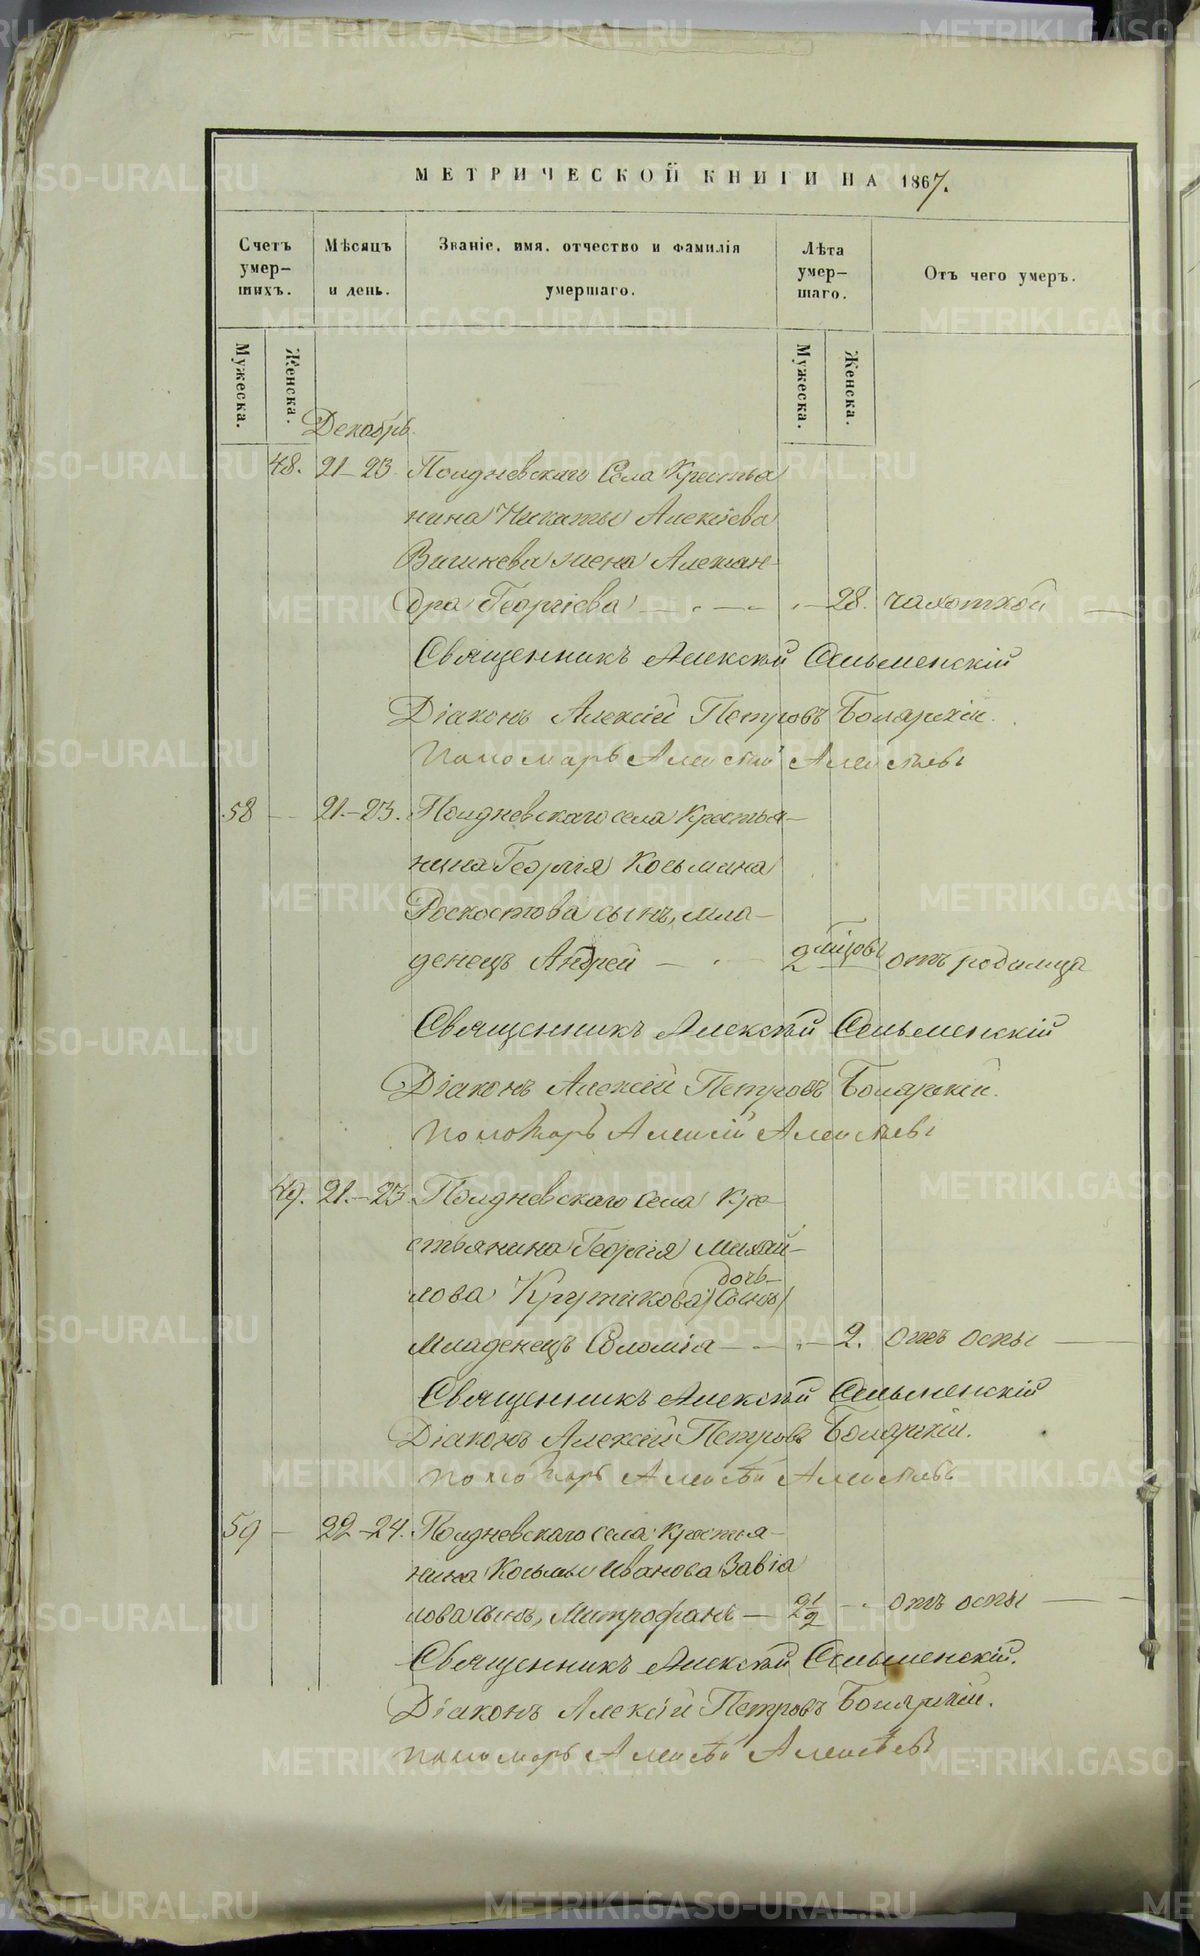 МЕТРИЧЕСКОЙ КНИГИ НА 1867.
Счетъ умер-шихъ.
Мѣсяцъ и день.
Званіе, имя, отчество и фамилія умершаго.
Лѣта умер-шаго.
Отъ чего умеръ.
Мужеска.
Женска.
Мужеска.
Женска.
Декабрь.
48. 21-23. Полдневскаго Села Крестья
нина Никиты Алексіева
жена Алексан-
дра Георгіева — 28. чахоткой —
Священникъ Алексѣй Сельменскій
Діаконъ Алексій Петровъ Боярскій.
Пономарь Алексѣй Алексѣевъ
58 — 21.-23. Полдневскаго села Крестья-
нина Георгія Косьмина
Роскостова сынъ, мла-
денецъ Андрей — 2 мѣсецовъ отъ родимца
Священникъ Алексѣй Сельменскій
Діаконъ Алексій Петровъ Боярскій.
Пономарь Алексій Алексѣевъ
49. 21.-23. Полдневскаго Села Кре-
стьянина Георгія Михай-
дочь
лова Крутикова (Сынъ)
Младенецъ Соломія — 2. отъ оспы —
Священникъ Алексѣй Сельменскій
Діаконъ Алексій Петровъ Боярскій.
Пономарь Алексѣй Алексѣевъ
59 — 22-24. Полдневскаго села Крестья-
нина Косьмы Иванова Завіа
лова сынъ, Митрофанъ — 2 1/2 — отъ оспы —
Священникъ Алексѣй Сельменскій.
Діаконъ Алексій Петровъ Боярскій.
Пономарь Алексѣй Алексѣевъ
METRIKI.GASO-URAL.RU